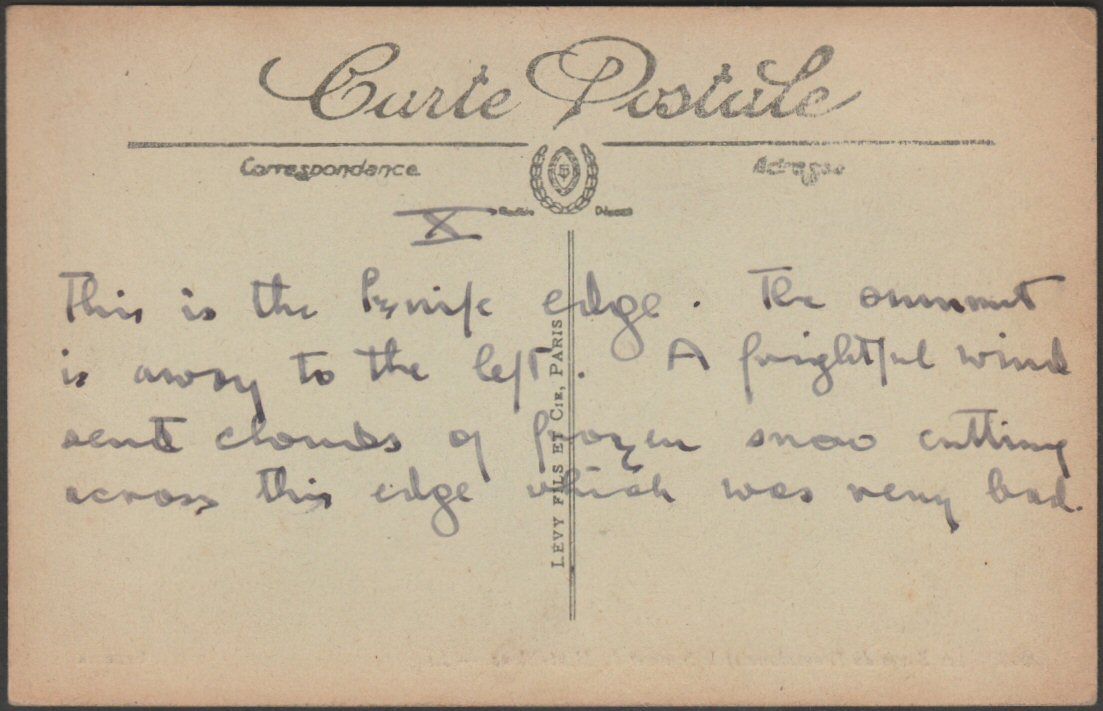 Carte Postale
Correspondance
Adresse
X
This is the Knife edge. The summit
is away to the left. A frightful wind
sent clouds of frozen snow cutting
across this edge which was very bad.
LÉVY FILS ET CIE, PARIS